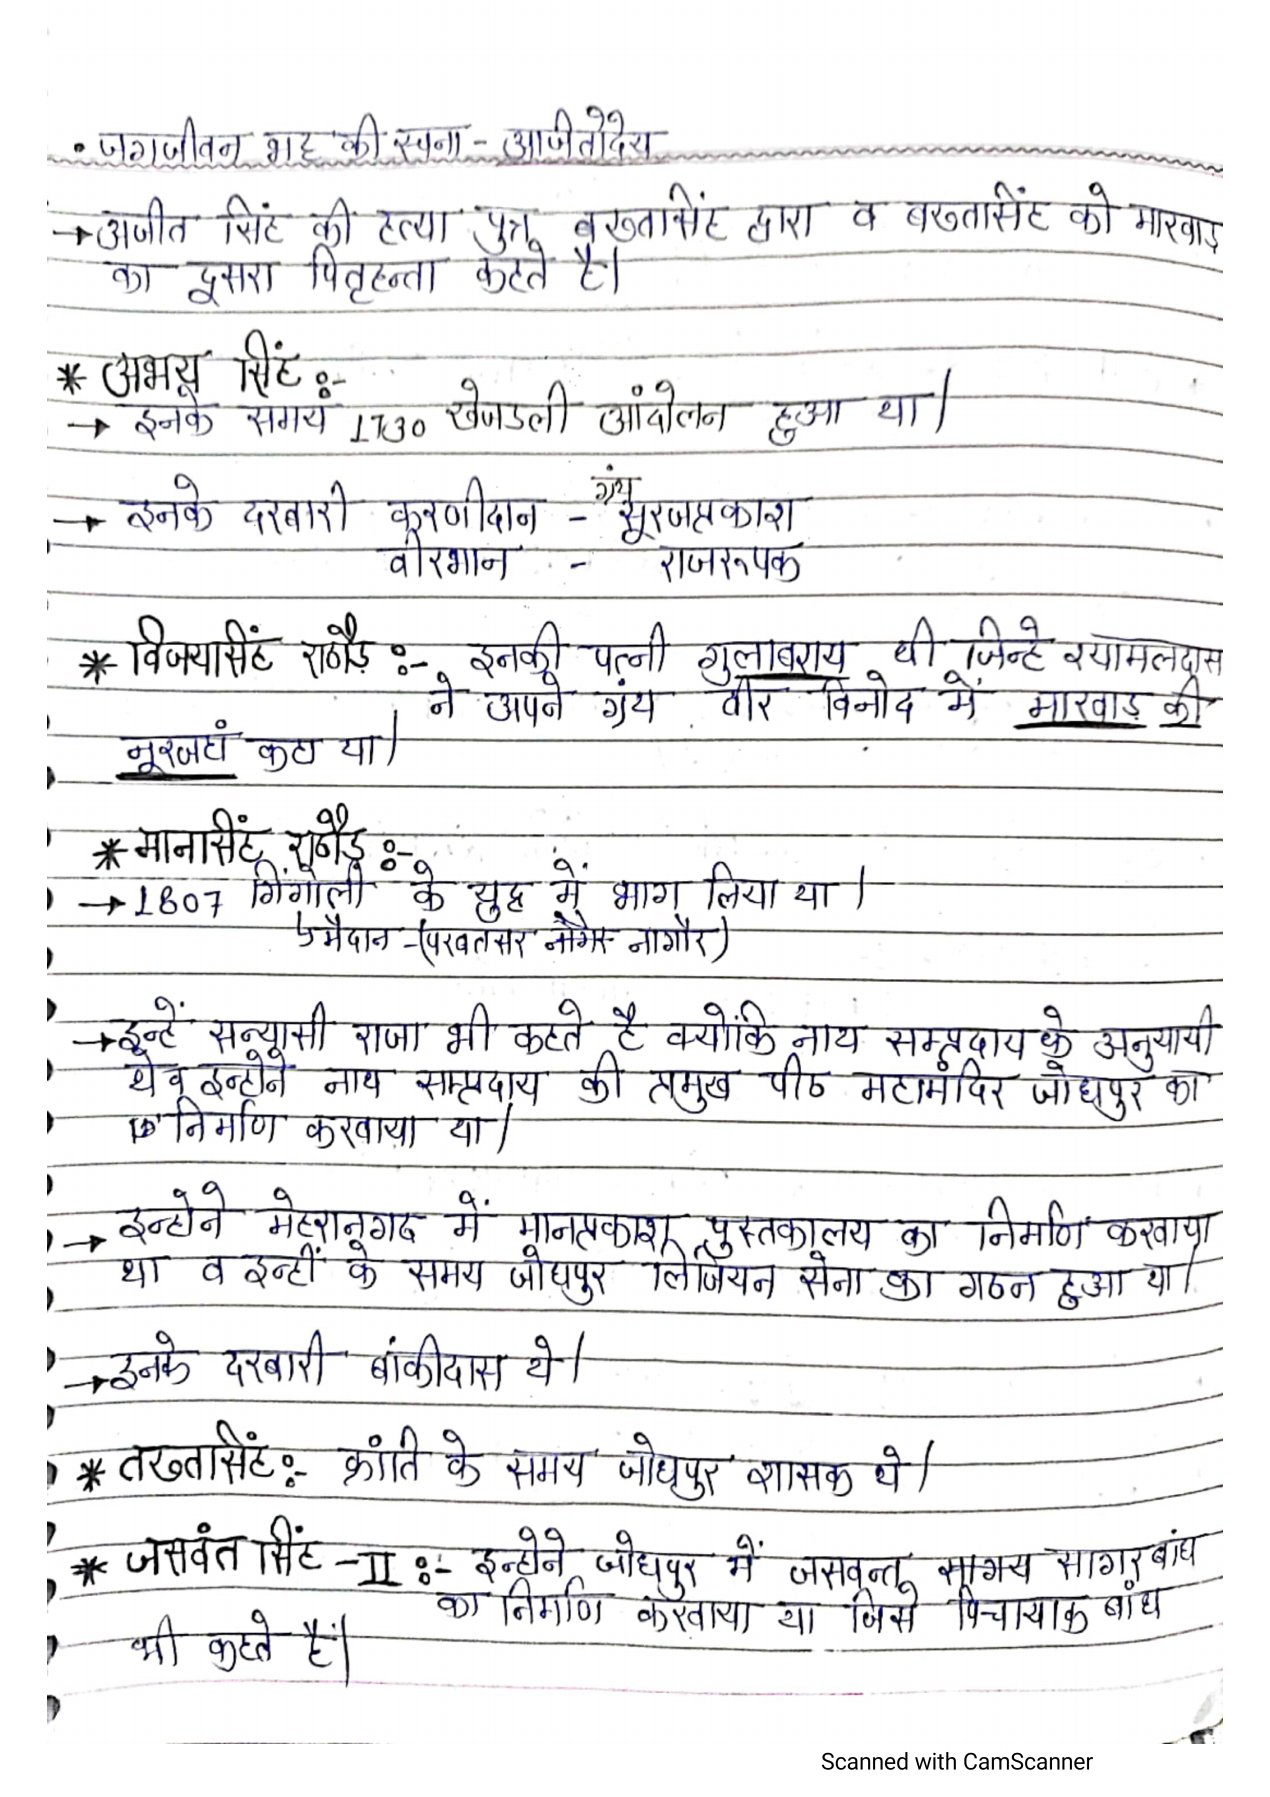 • जगजीवन भट्ट की रचना - अजीतोदय
→ अजीत सिंह की हत्या पुत्र बख्तसिंह द्वारा व बख्तसिंह को मारवाड़
का दूसरा पितृहन्ता कहते है।
* अभय सिंह :-
→ इनके समय 1730 खेजडली आंदोलन हुआ था।
ग्रंथ
→ इनके दरबारी करणीदान - सूरजप्रकाश
वीरभान - राजरूपक
* विजयसिंह राठौड़ :- इनकी पत्नी गुलाबराय थी जिन्हे श्यामलदास
ने अपने ग्रंथ वीर विनोद में मारवाड़ की
नूरजहां कहा था।
* मानसिंह राठौड़ :-
→ 1807 गिंगोली के युद्ध में भाग लिया था।
↳ मैदान - (परबतसर नागौर)
→ इन्हें सन्यासी राजा भी कहते है क्योंकि नाथ सम्प्रदाय के अनुयायी
थे व इन्होने नाथ सम्प्रदाय की प्रमुख पीठ महामंदिर जोधपुर का
निर्माण करवाया था।
→ इन्होने मेहरानगढ में मानप्रकाश पुस्तकालय का निर्माण करवाया
था व इन्हीं के समय जोधपुर लिजियन सेना का गठन हुआ था।
→ इनके दरबारी बांकीदास थे।
* तख्तसिंह :- क्रांति के समय जोधपुर शासक थे।
* जसवंत सिंह - II :- इन्होने जोधपुर में जसवन्त सागर बांध
का निर्माण करवाया था जिसे पिचायाक बांध
भी कहते हैं।
Scanned with CamScanner